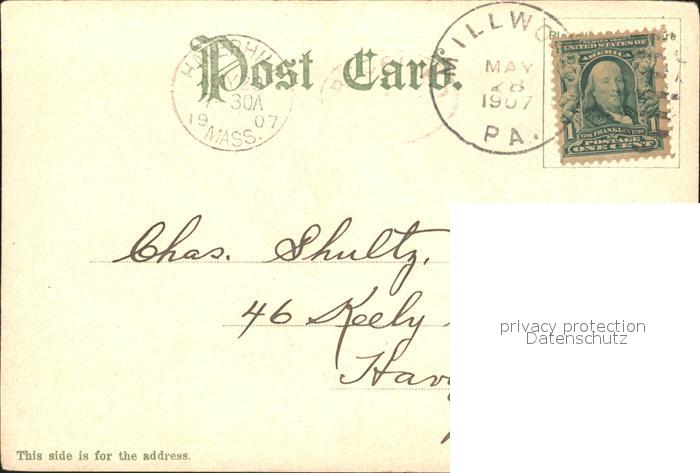 Post Card.
HAVERHILL
30A
1907
MASS.
MILLWO
MAY
28
1907
PA.
SERIES 1902
UNITED STATES OF
AMERICA
1 1706 FRANKLIN 1790 1
POSTAGE
ONE CENT
Chas. Shultz,
46 Keely
Hav
privacy protection
Datenschutz
This side is for the address.